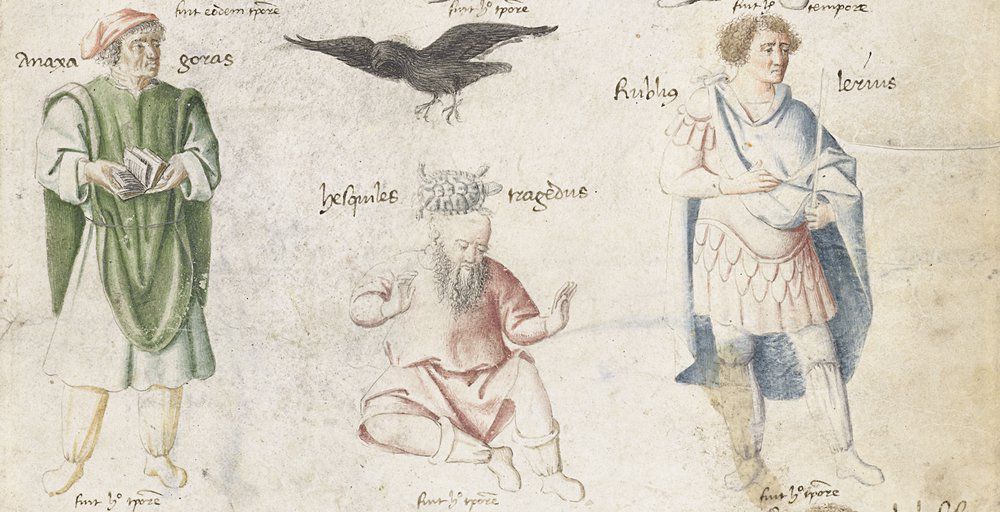 fuit eodem tpore
fuit ho tpore
fuit ho tempore
Anaxa goras
Rublius lerius
hesquiles tragedus.
fuit ho tpore
fuit ho tpore
fuit ho tpore